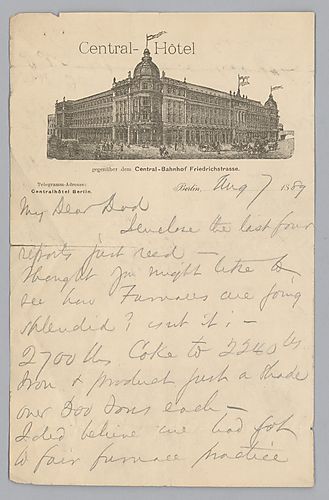 Central-Hôtel
gegenüber dem Central-Bahnhof Friedrichstrasse.
Telegramm-Adresse:
Centralhôtel Berlin.
Berlin, Aug 7 1889
My Dear Dod
I enclose the last four
reports just recd —
Thought you might like to
see how Furnaces are going
splendid? isnt it; —
2700 lbs Coke to 2240 lbs
Iron & product just a shade
over 300 Tons each —
I do believe we had got
a fair furnace practice